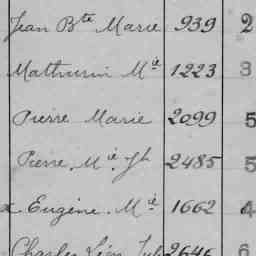 Jean Bte Marie 939 2
Mathurin Mie 1223 3
Pierre Marie 2099 5
Pierre, Mie Jh 2485 5
Eugène, Mie 1662
Charles Léon Jul 2646 6